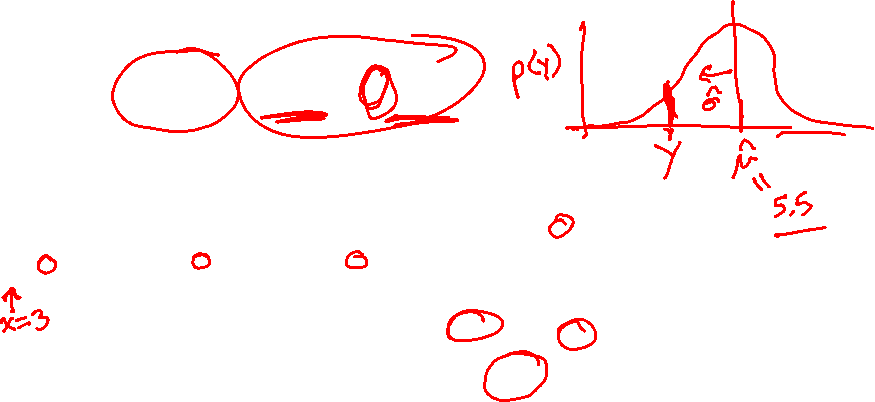 p(y)
σ̂
y
μ̂
=
5.5
x=3